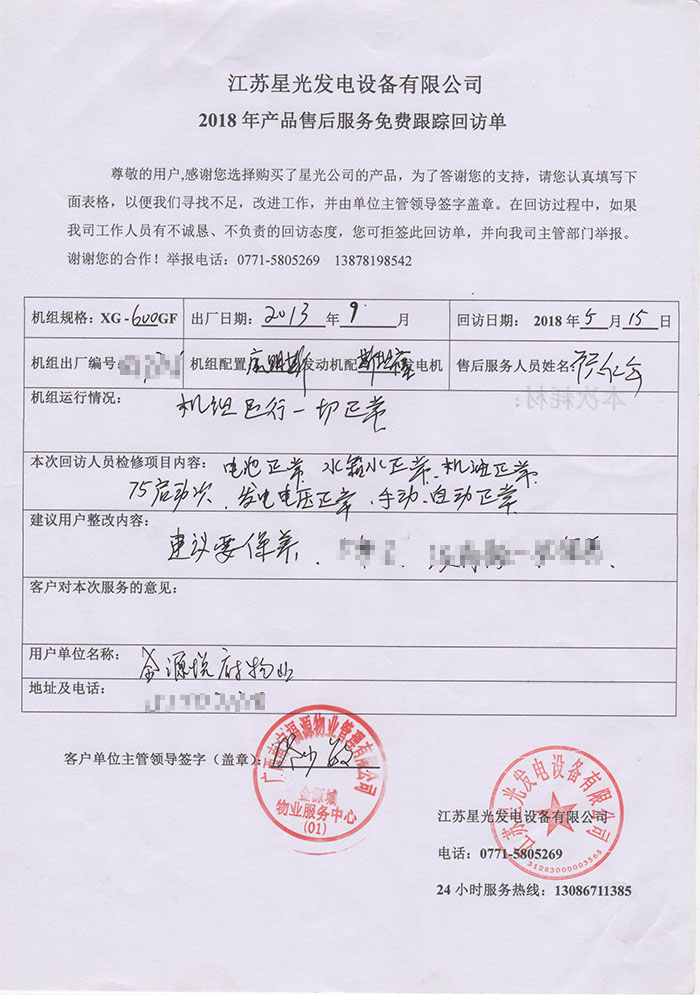 江苏星光发电设备有限公司
2018 年产品售后服务免费跟踪回访单
尊敬的用户,感谢您选择购买了星光公司的产品，为了答谢您的支持，请您认真填写下
面表格，以便我们寻找不足，改进工作，并由单位主管领导签字盖章。在回访过程中，如果
我司工作人员有不诚恳、不负责的回访态度，您可拒签此回访单，并向我司主管部门举报。
谢谢您的合作！举报电话：0771-5805269 13878198542
机组规格：XG-600GF 出厂日期：2013 年 9 月 回访日期：2018 年 5 月 15 日
机组出厂编号: 机组配置 发动机配 斯坦福 发电机 售后服务人员姓名:
本次耗材：
机组运行情况：
机组运行一切正常
本次回访人员检修项目内容：电池正常 水箱水正常、机油正常
75启动次、发电电压正常、手动、自动正常
建议用户整改内容：
建议要保养、
客户对本次服务的意见：
用户单位名称：金源悦府物业
地址及电话：
客户单位主管领导签字（盖章）：
福源物业管理有限公司
金源城
物业服务中心
(01)
江苏星光发电设备有限公司
31283000003565
江苏星光发电设备有限公司
电话：0771-5805269
24 小时服务热线：13086711385